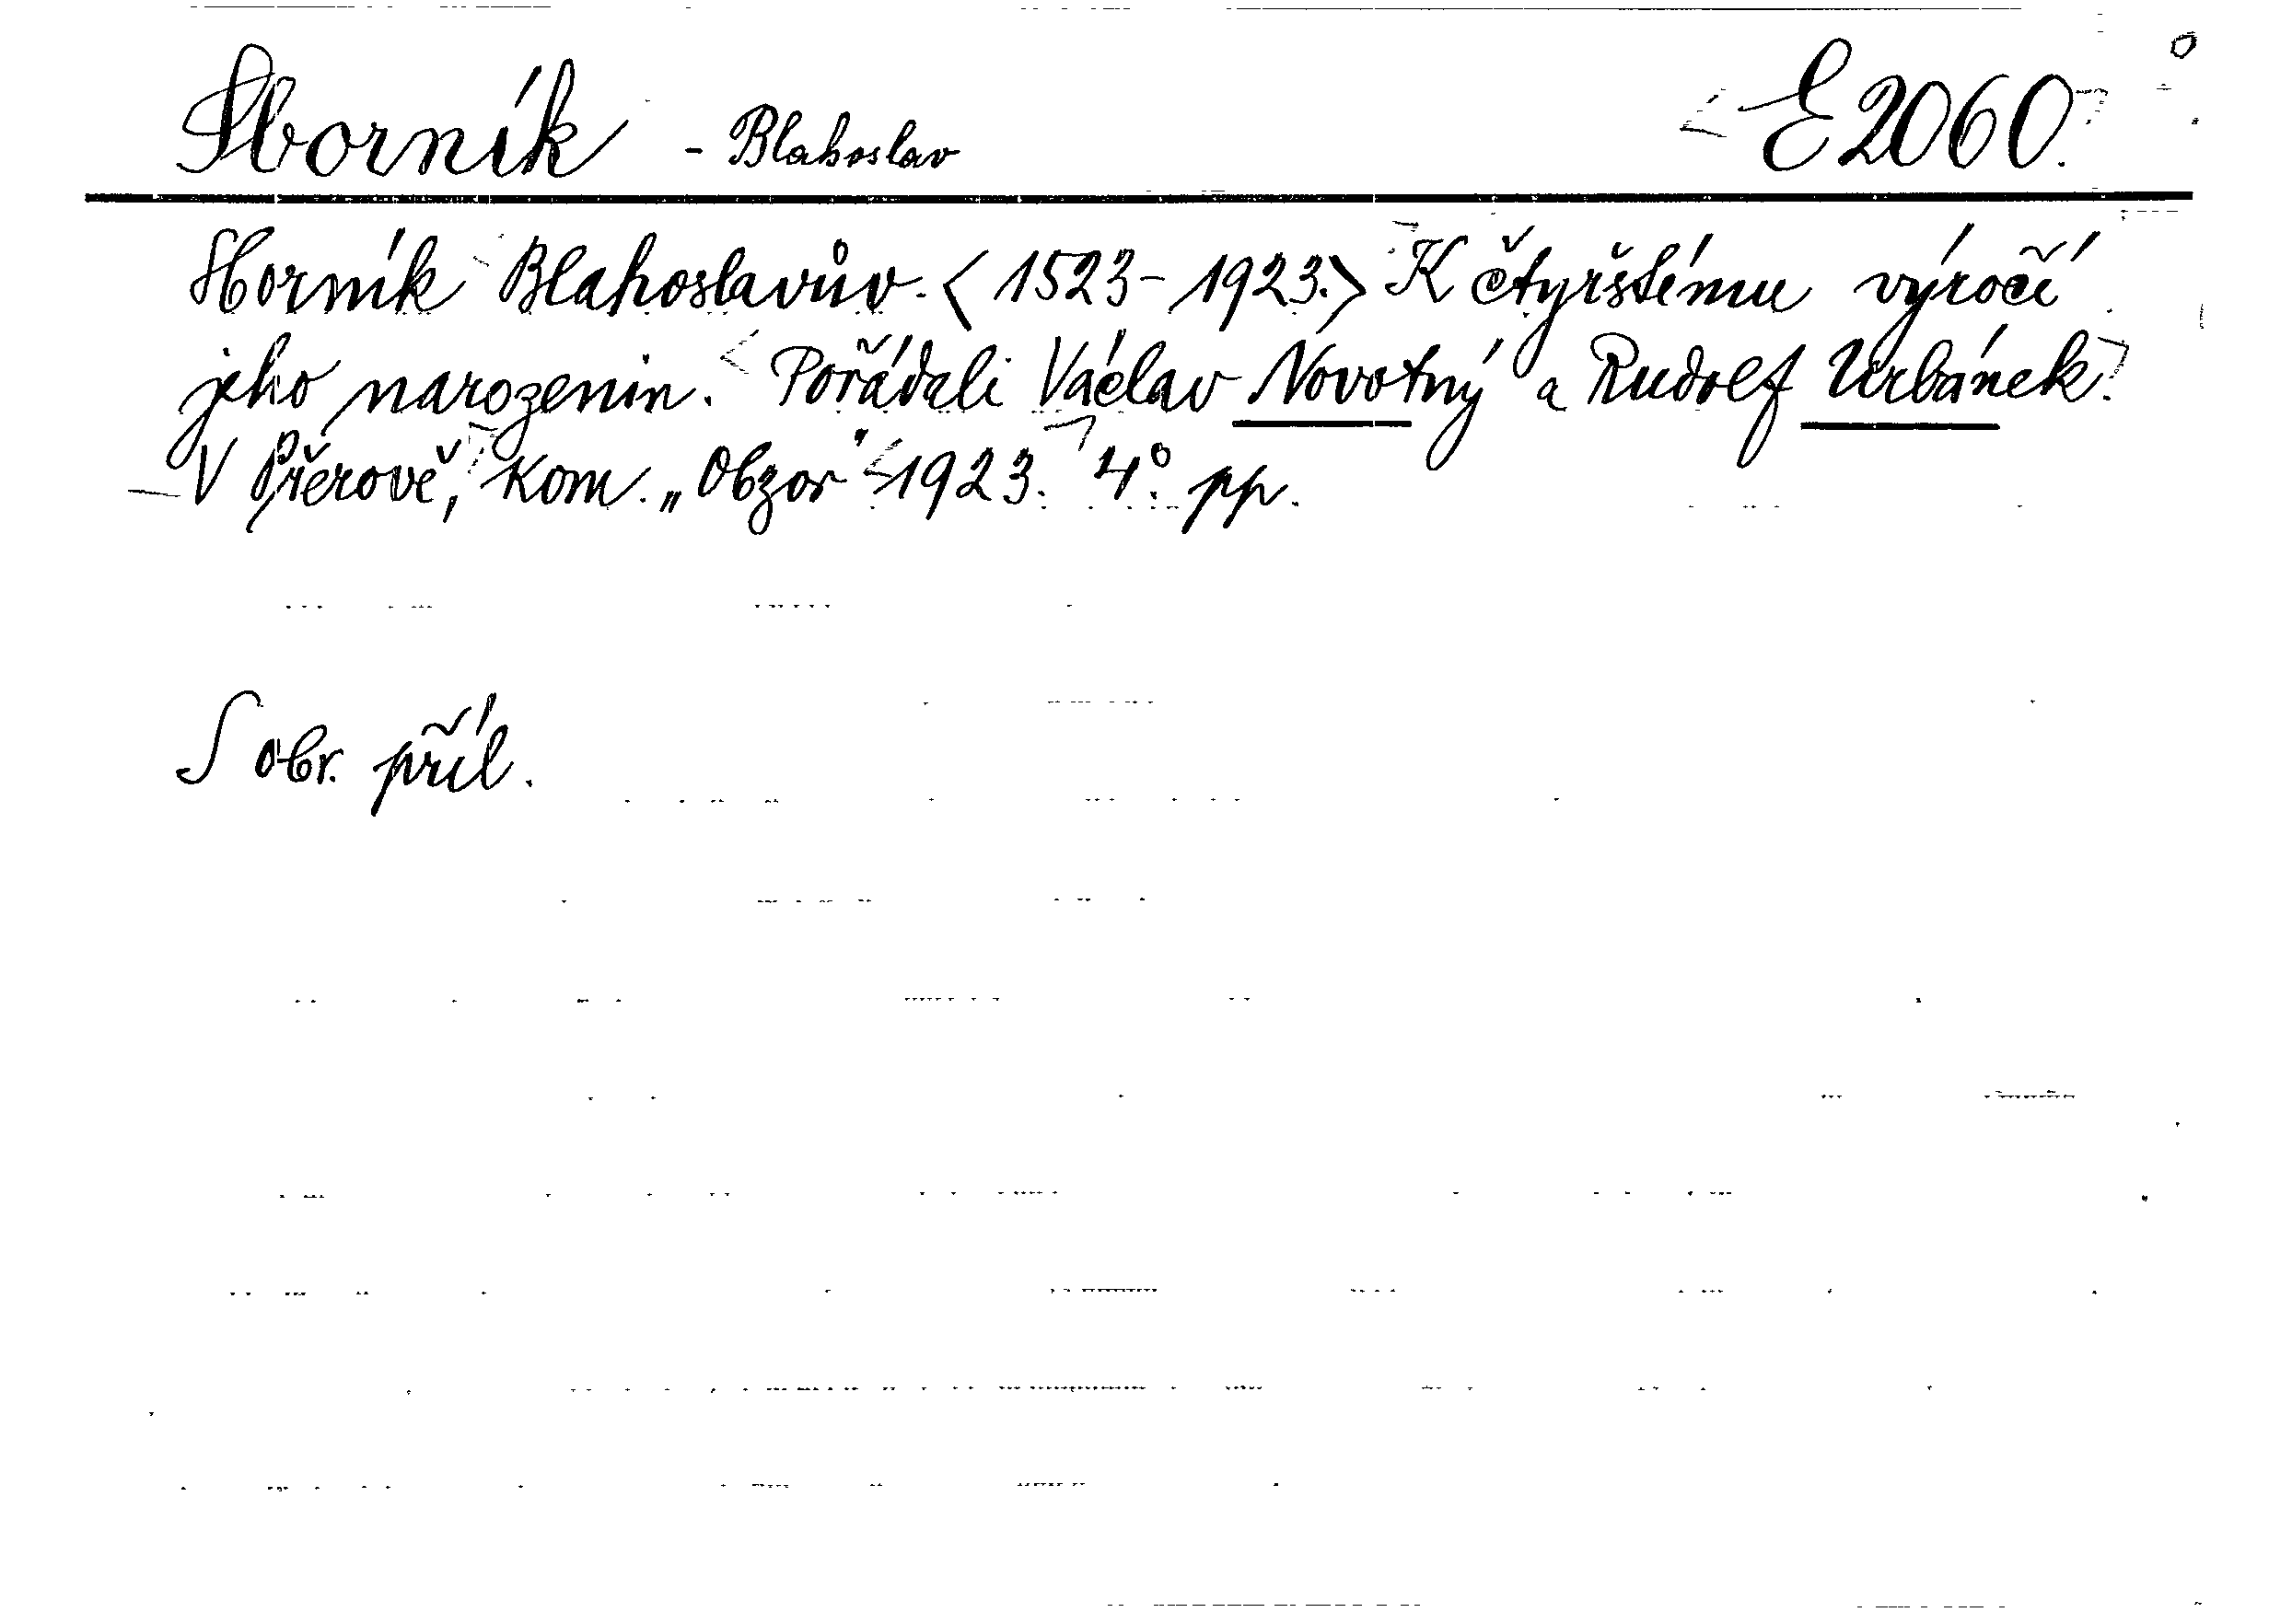 Sborník - Blahoslav E 2060.
Sborník Blahoslavův. <1523-1923.> K čtyřstému výročí
jeho narozenin. Pořádali Václav Novotný a Rudolf Urbánek.
V Přerově, Kom. „Obzor" 1923. 4°. pp.
S obr. příl.